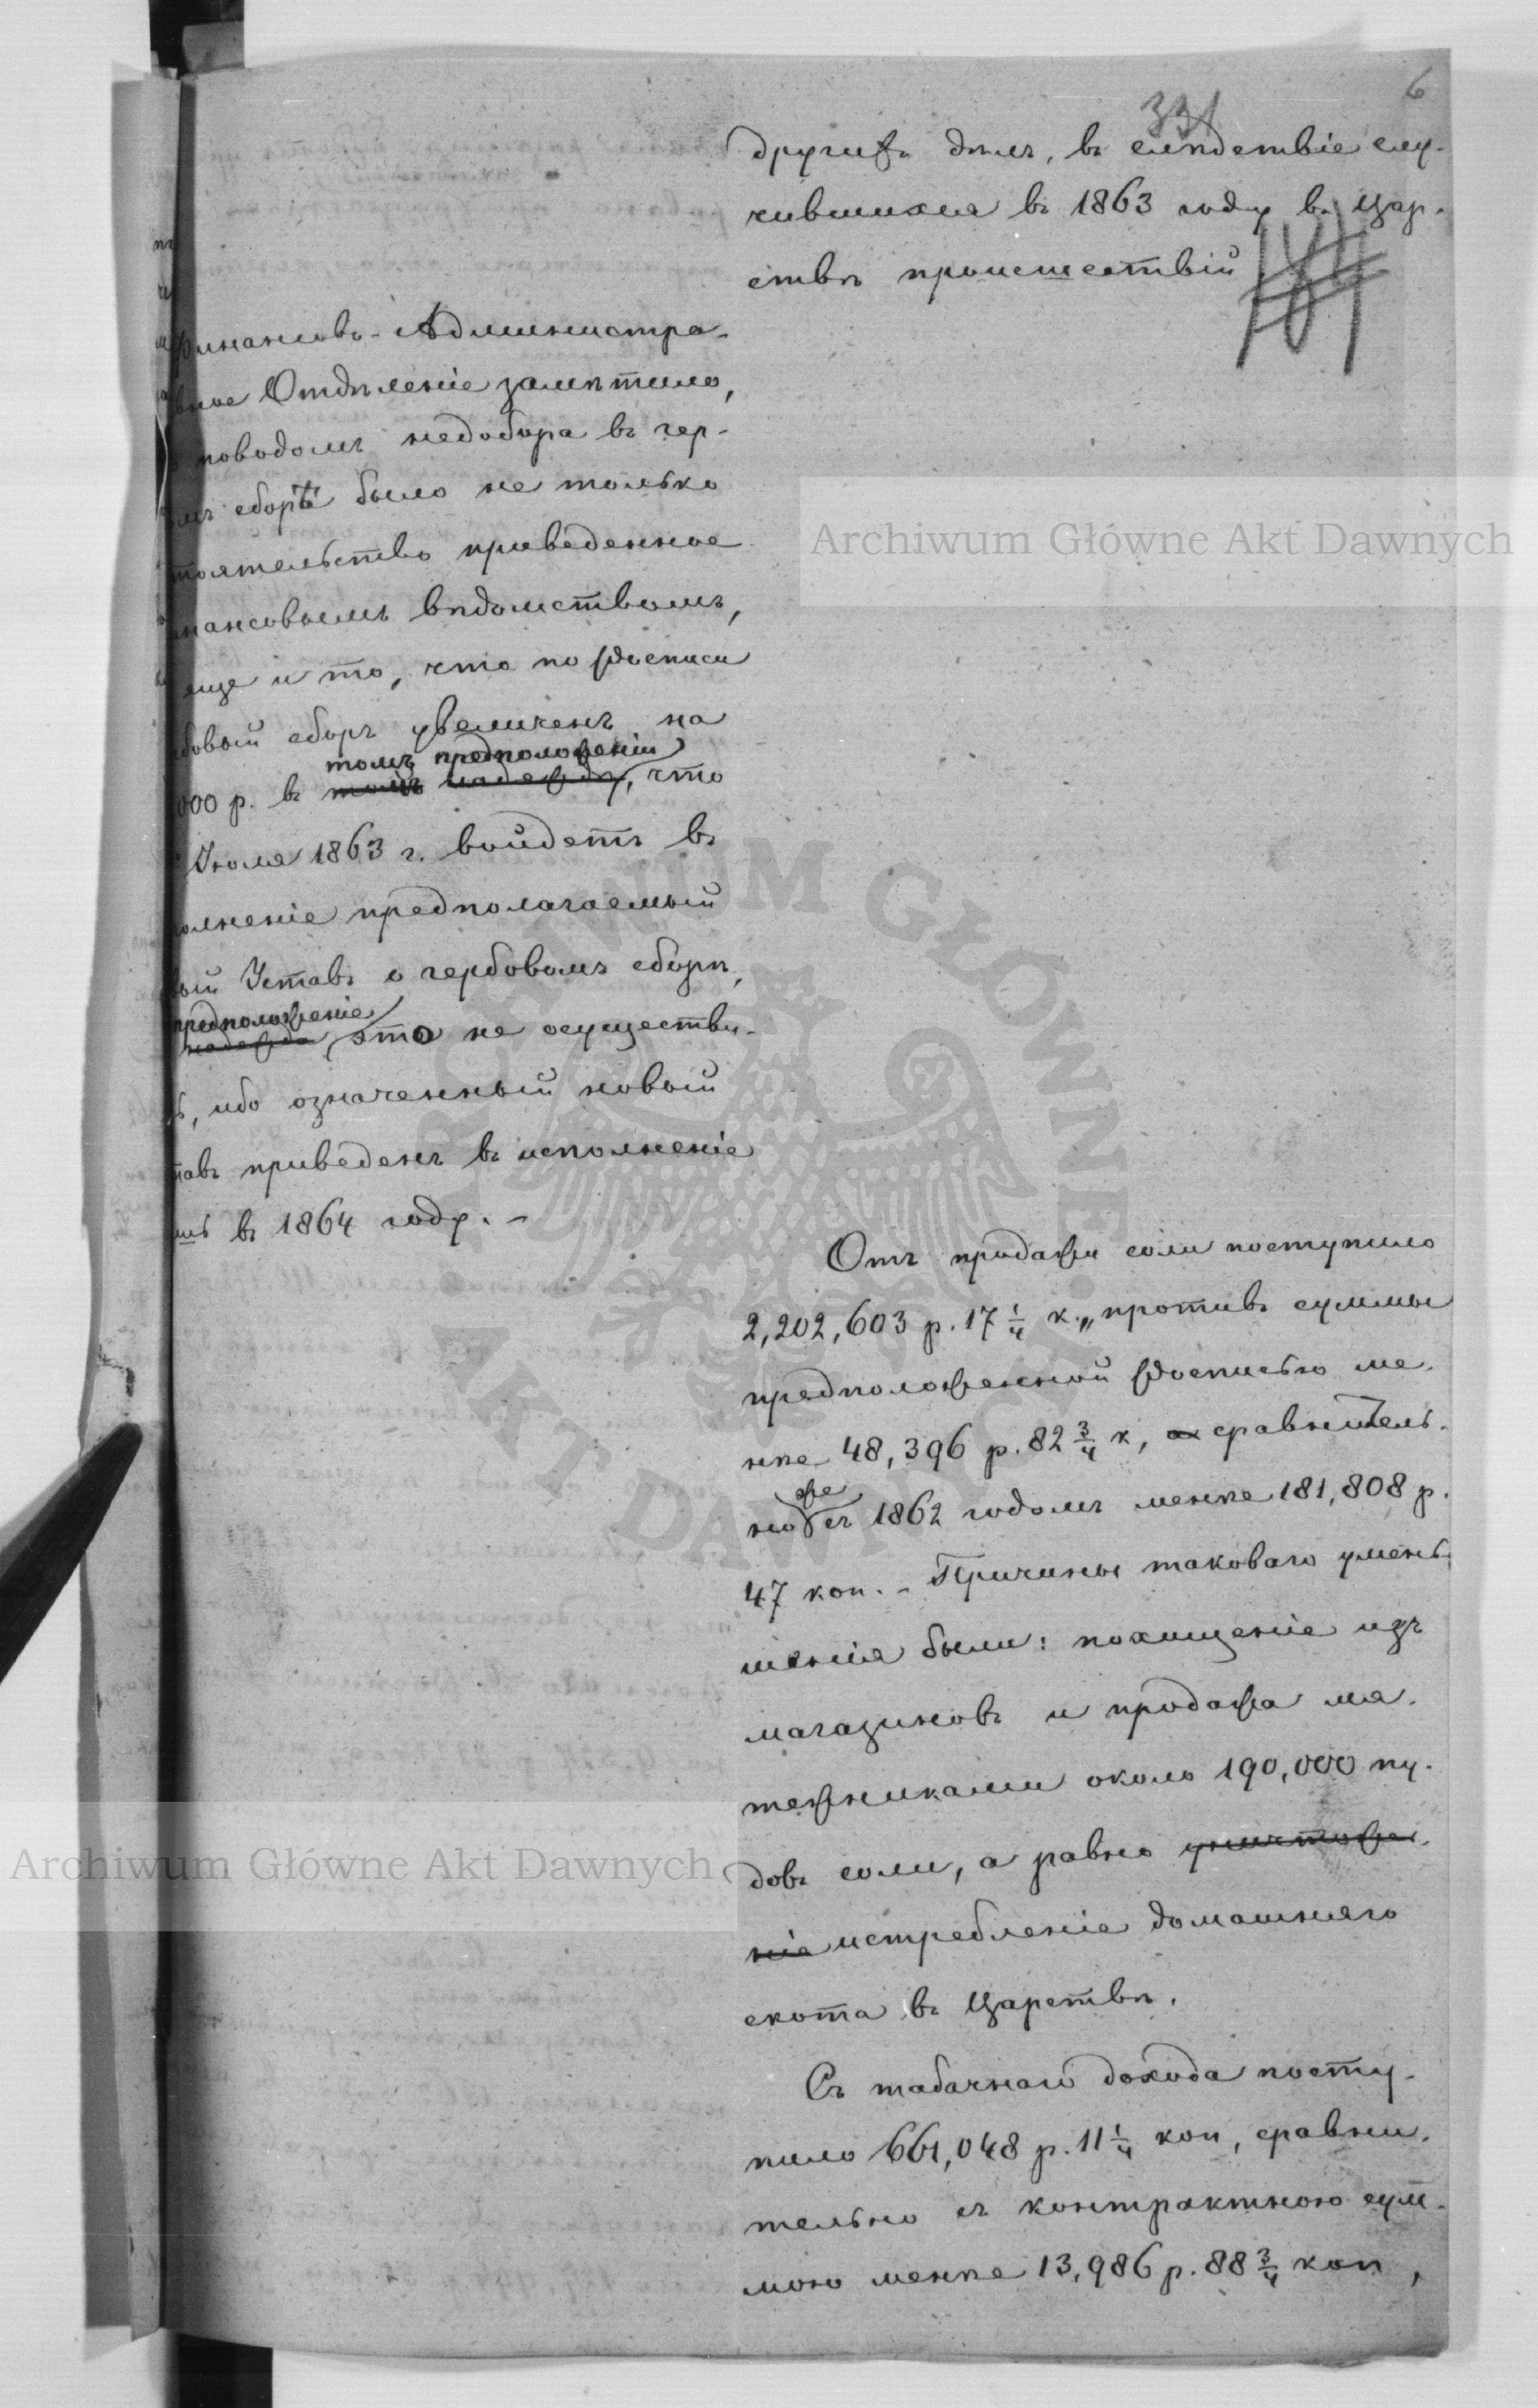 6
331
другихъ дѣлъ, въ слѣдствіе слу-
чившихся въ 1863 году въ Цар-
ствѣ происшествій
Финансово-Администра-
вное Отдѣленіе замѣтило,
поводомъ недобора въ гер-
мъ сборѣ было не только
тоятельство приведенное
нансовымъ вѣдомствомъ,
еще и то, что по росписи
бовый сборъ увеличенъ на
томъ предположеніи
000 р. въ той надеждѣ, что
Іюля 1863 г. войдетъ въ
олненіе предполагаемый
вый Уставъ о гербовомъ сборѣ,
предположеніе
надежда это не осуществи-
ь, ибо означенный новый
тавъ приведенъ въ исполненіе
шь въ 1864 году. -
Отъ продажи соли поступило
2,202,603 р. 17 1/4 к., противъ суммы
предположенной росписью ме-
нѣе 48,396 р. 82 3/4 к, а сравнитель-
же
но съ 1862 годомъ менѣе 181,808 р.
47 коп. - Причины таковаго умень-
шенія были: похищеніе изъ
магазиновъ и продажа мя-
тежниками около 190,000 пу-
довъ соли, а равно уничтоже-
ніе истребленіе домашняго
скота въ Царствѣ.
Съ табачнаго дохода посту-
пило 661,048 р. 11 1/4 коп, сравни-
тельно съ контрактною сум-
мою менѣе 13,986 р. 88 3/4 коп,
Archiwum Główne Akt Dawnych
Archiwum Główne Akt Dawnych
ARCHIWUM GŁÓWNE AKT DAWNYCH